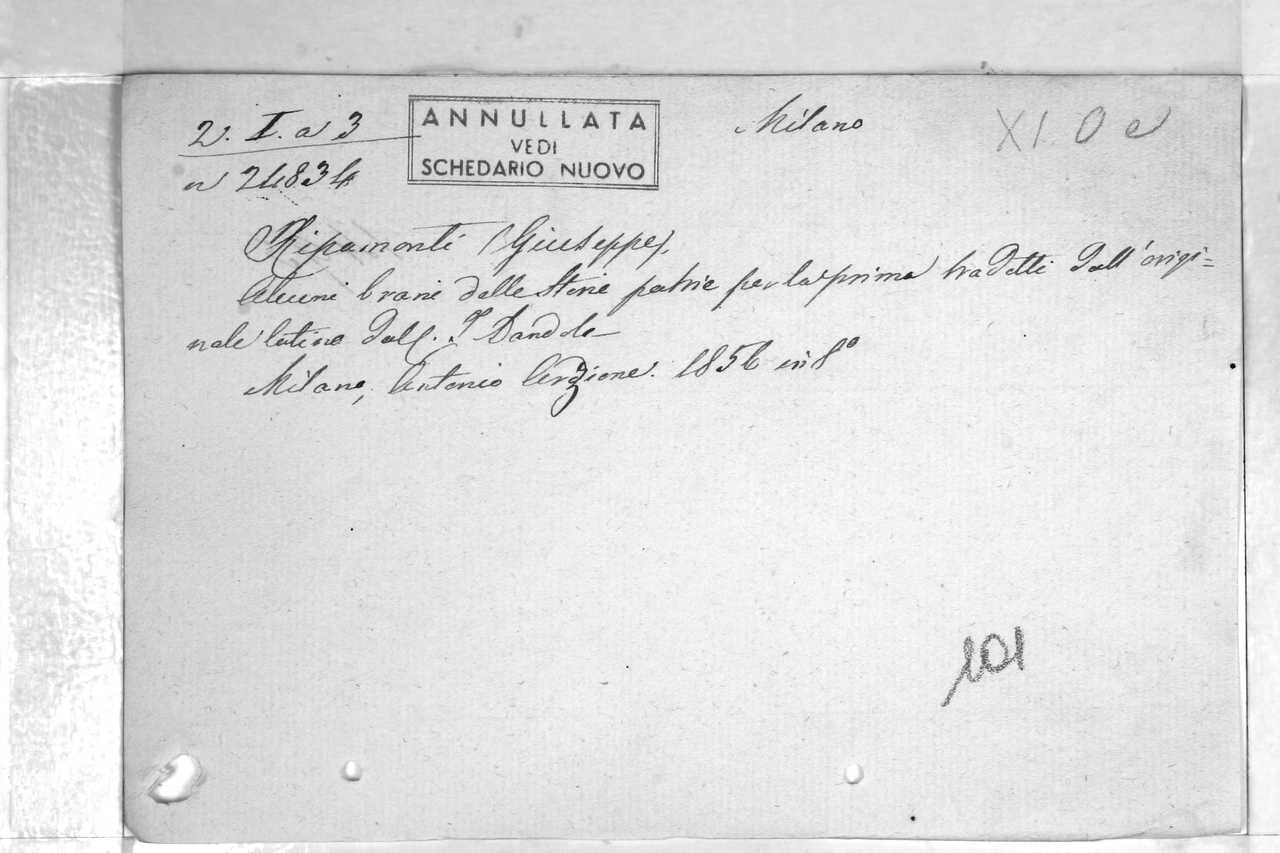 2. I. a 3
ANNULLATA
VEDI
SCHEDARIO NUOVO
Milano
XI. O e
n 24834
Ripamonti (Giuseppe).
Alcuni brani delle Storie patrie per la prima tradotti dall'origi=
nale latino dal C. T Dandolo
Milano, Antonio Arzione. 1856 in 8°
101